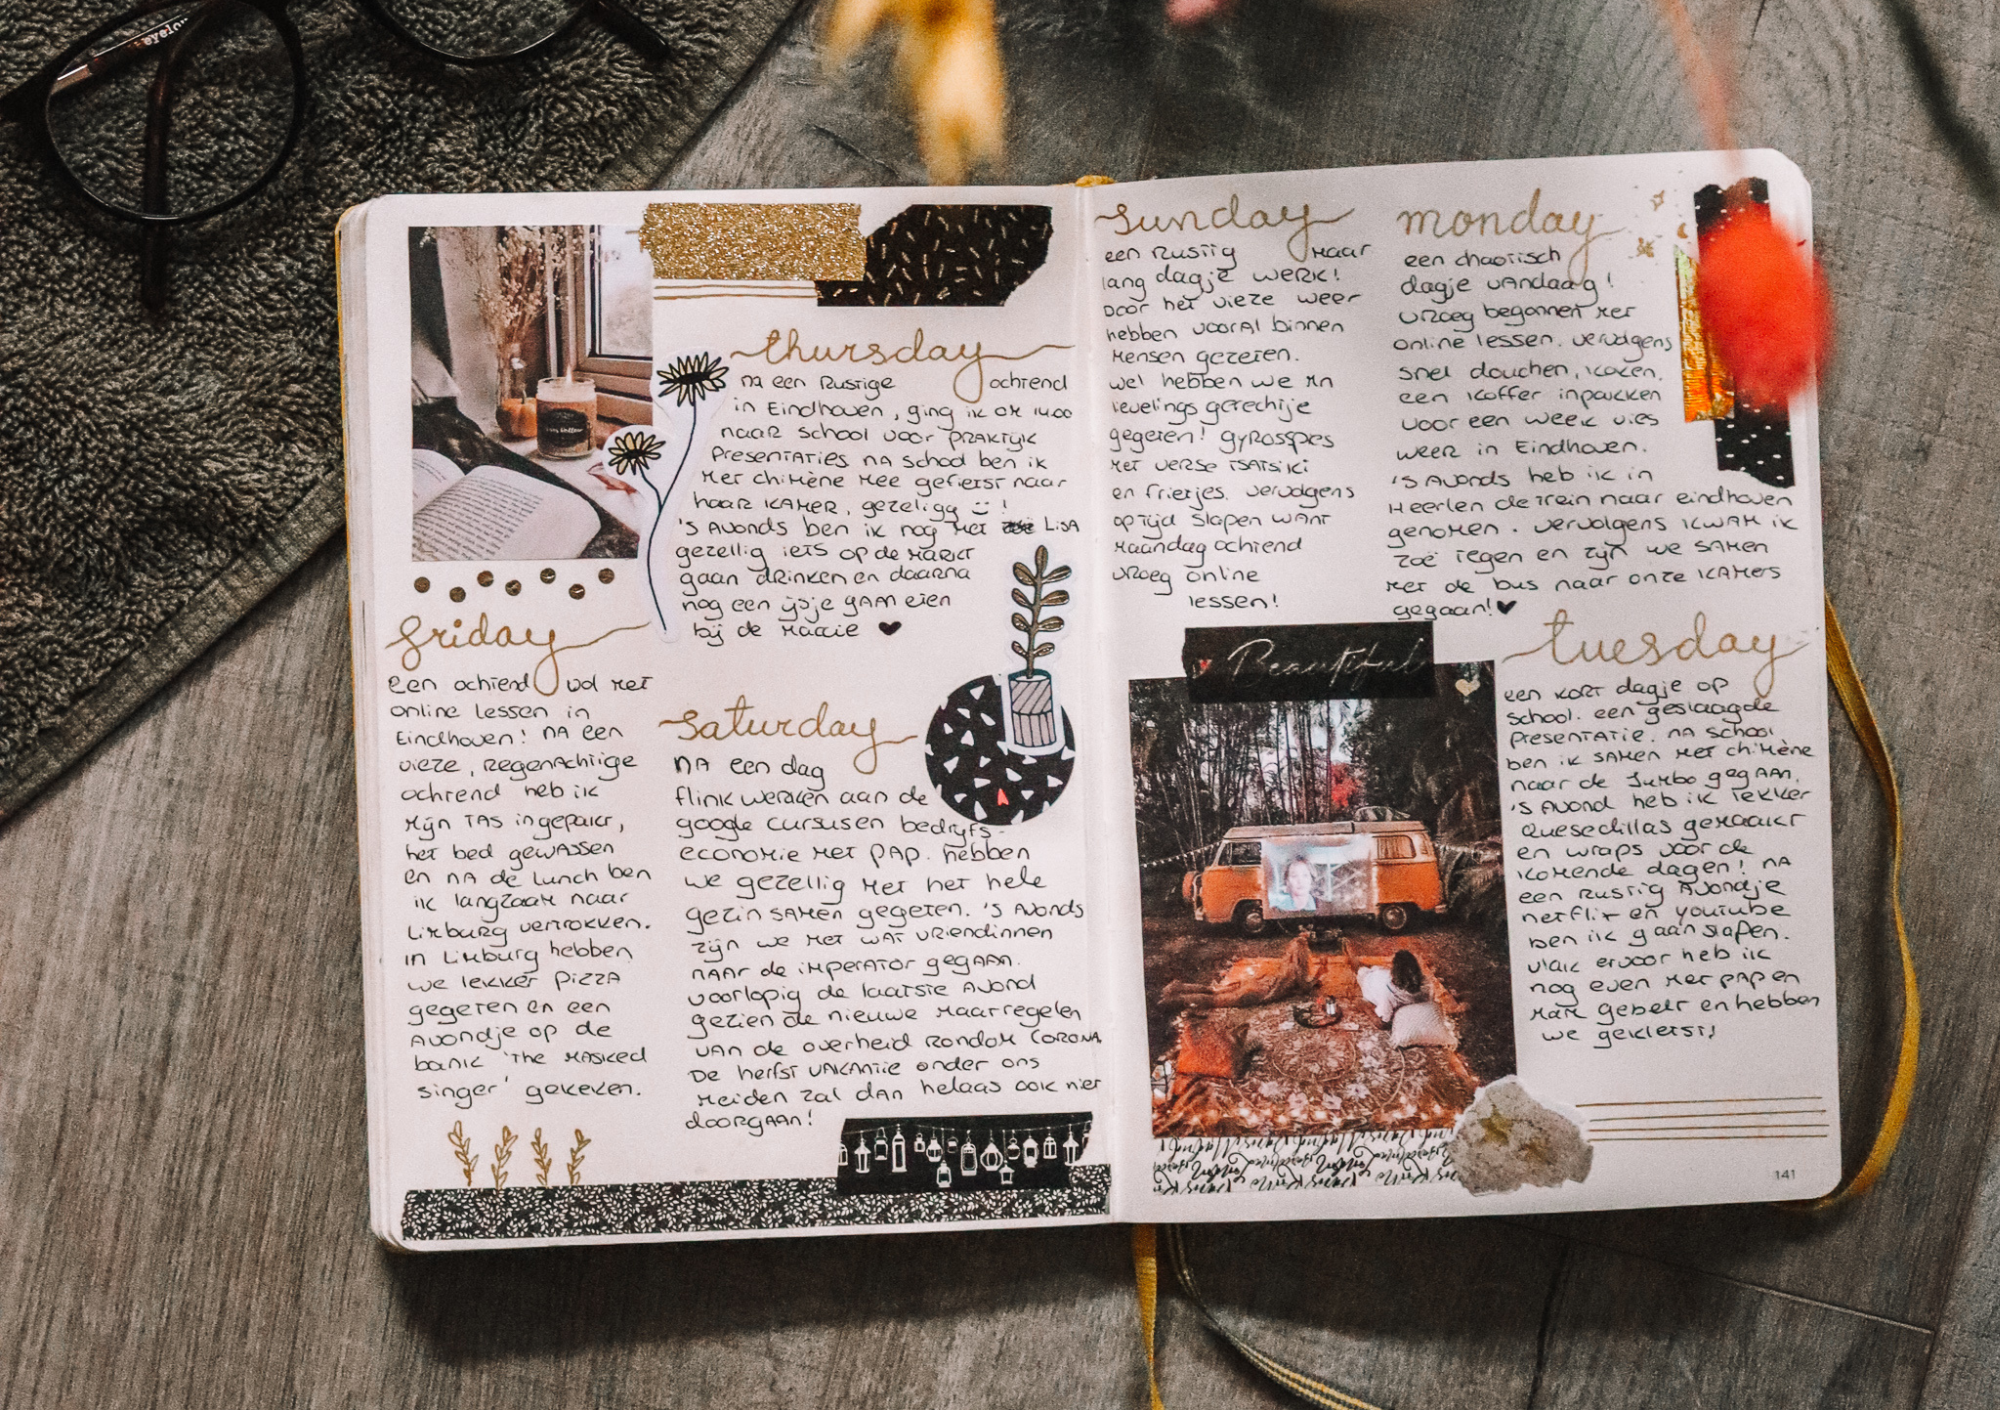 eyelo
thursday
na een rustige ochtend
in Eindhoven, ging ik om 14.00
naar school voor praktijk
presentaties na school ben ik
met chimène mee gefietst naar
haar kamer, gezeligg !
's avonds ben ik nog met Lisa
gezellig iets op de markt
gaan drinken en daarna
nog een ijsje gaan eten
bij de
friday
een ochtend vol met
online lessen in
Eindhoven! na een
vieze, regenachtige
ochtend heb ik
mijn tas ingepakt,
het bed gewassen
en na de lunch ben
ik langzaam naar
Limburg vertrokken.
in Limburg hebben
we lekker pizza
gegeten en een
avondje op de
bank 'the masked
singer' gekeken.
saturday
na een dag
flink werken aan de
google cursus en bedrijfs-
economie met pap. hebben
we gezellig met het hele
gezin samen gegeten. 's avonds
zijn we met wat vriendinnen
naar de imperator gegaan.
voorlopig de laatste avond
gezien de nieuwe maatregelen
van de overheid rondom corona
De herfst vakantie onder ons
meiden zal dan helaas ook niet
doorgaan!
sunday
een rustig maar
lang dagje werk!
Door het vieze weer
hebben vooral binnen
mensen gezeten.
wel hebben we mn
levelings gerechtje
gegeten! gyrosspies
met verse tsatsiki
en frietjes. vervolgens
op tijd slapen want
maandag ochtend
vroeg online
lessen!
monday
een chaotisch
dagje vandaag!
vroeg begonnen met
online lessen. vervolgens
snel douchen, koken,
een koffer inpakken
voor een week vies
weer in Eindhoven.
's avonds heb ik in
Heerlen de trein naar eindhoven
genomen. vervolgens kwam ik
zoë tegen en zijn we samen
met de bus naar onze kamers
gegaan!
Beautiful
tuesday
een kort dagje op
school. een geslaagde
presentatie. na school
ben ik samen met chimène
naar de Jumbo gegaan.
's avond heb ik lekker
quesedillas gemaakt
en wraps voor de
komende dagen! na
een rustig avondje
netflix en youtube
ben ik gaan slapen.
vlak ervoor heb ik
nog even met pap en
mam gebelt en hebben
we gekletst!
141